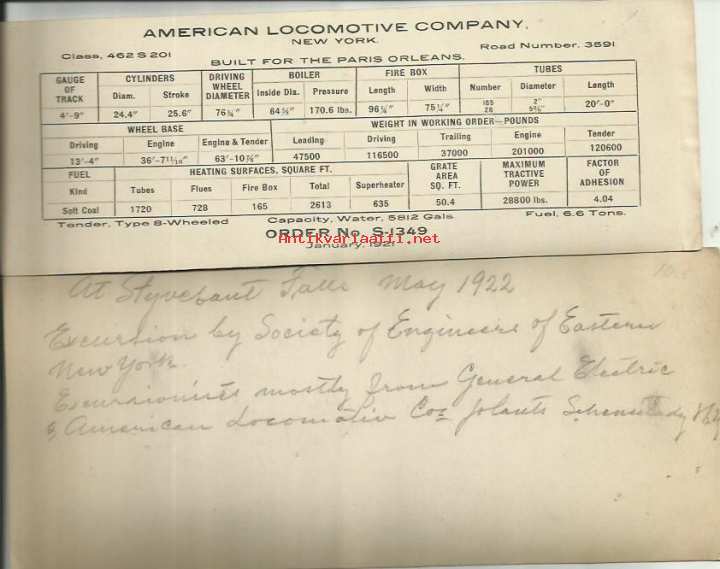 AMERICAN LOCOMOTIVE COMPANY.
NEW YORK.
Class, 462 S 201
BUILT FOR THE PARIS ORLEANS.
Road Number, 3591
GAUGE OF TRACK CYLINDERS DRIVING WHEEL DIAMETER BOILER FIRE BOX TUBES
Diam. Stroke Inside Dia. Pressure Length Width Number Diameter Length
4'-9" 24.4" 25.6" 76¾" 170.6 lbs. 96¼" 75¼" 20'-0"
28
WHEEL BASE WEIGHT IN WORKING ORDER—POUNDS
Driving Engine Engine & Tender Leading Driving Trailing Engine Tender
13'-4" 47500 116500 37000 201000 120600
FUEL HEATING SURFACES, SQUARE FT. GRATE AREA SQ. FT. MAXIMUM TRACTIVE POWER FACTOR OF ADHESION
Kind Tubes Flues Fire Box Total Superheater
Soft Coal 1720 728 165 2613 635 50.4 28800 lbs. 4.04
Tender, Type 8-Wheeled Capacity, Water, 5812 Gals. Fuel, 6.6 Tons.
ORDER No. S-1349
Antikvariaatti.net
January, 1921
At Styvesant Falls May 1922
Excursion by Society of Engineers of Eastern
New York.
Excursionists mostly from General Electric
& American Locomotiv Cos